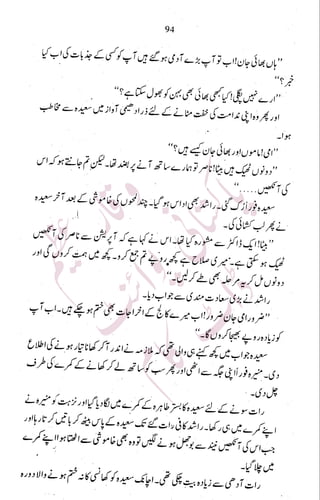 94
”ہاں بھائی جان! اب تو آپ بڑے آدمی ہو گئے ہیں آپ کو کسی کے جذبات کی اب کیا
خبر؟“
”ارے نہیں پگلی! کیا کبھی بھائی بھی بہن کو بھول سکتا ہے؟“
اور پھر وہ اپنی ندامت کی خفت مٹانے کے لئے ذرا دھیمی آواز میں سعیدہ سے مخاطب
ہوا۔
”امی! ماموں اور بھائی جان کیسے ہیں؟“
”دونوں ٹھیک ہیں بیٹا! ناصر تو ہمارے ساتھ آنے پر بضد تھا۔ لیکن تم جانتے ہو کہ اس
کی آنکھیں.....“
سعیدہ فوراً رک گئی۔ راشد بھی اداس ہو گیا۔ چند لمحوں کی خاموشی کے بعد آخر سعیدہ
نے پھر لب کشائی کی۔
”بیٹا! ایک ڈاکٹر سے مشورہ کیا تھا۔ اس نے کہا ہے کہ آپریشن سے ناصر کی آنکھیں
ٹھیک ہو سکتی ہے۔ میری صلاح ہے کچھ روپے تم جمع کرو۔ کچھ میں ہمت کروں گی اور
دونوں مل کر یہ مرحلہ بھی طے کر لیں۔“
راشد نے بڑی سعادت مندی سے جواب دیا۔
”ضرور امی جان ضرور! اب میرے کالج کے اخراجات بھی ختم ہو چکے ہیں۔ اب آپ
کو زیادہ روپے بھیجا کروں گا۔“
سعیدہ جواب میں کچھ کہنے ہی والی تھی کہ ملازمہ نے اندر آ کر کھانا تیار ہونے کی اطلاع
دی۔ منیرہ فوراً اپنی جگہ سے اٹھی اور پھر سب کو ساتھ لے کر کھانے کے کمرے کی طرف
چل دی۔
رات سونے کے لئے سعیدہ کا بستر طاہرہ کے کمرے میں لگا دیا گیا اور نزہت کو منیرہ نے
اپنے کمرے میں ہی رکھا۔ راشد کافی رات گئے تک سعیدہ کے پاس بیٹھ کر باتیں کرتا رہا اور
جب اس کی آنکھیں نیند سے بوجھل ہونے لگیں تو وہ بھی خاموشی سے اٹھتا ہوا اپنے کمرے
میں چلا گیا۔
رات آدھی سے زیادہ بیت چکی تھی۔ اچانک سعیدہ کو کھانسی کا نہ ختم ہونے والا دورہ